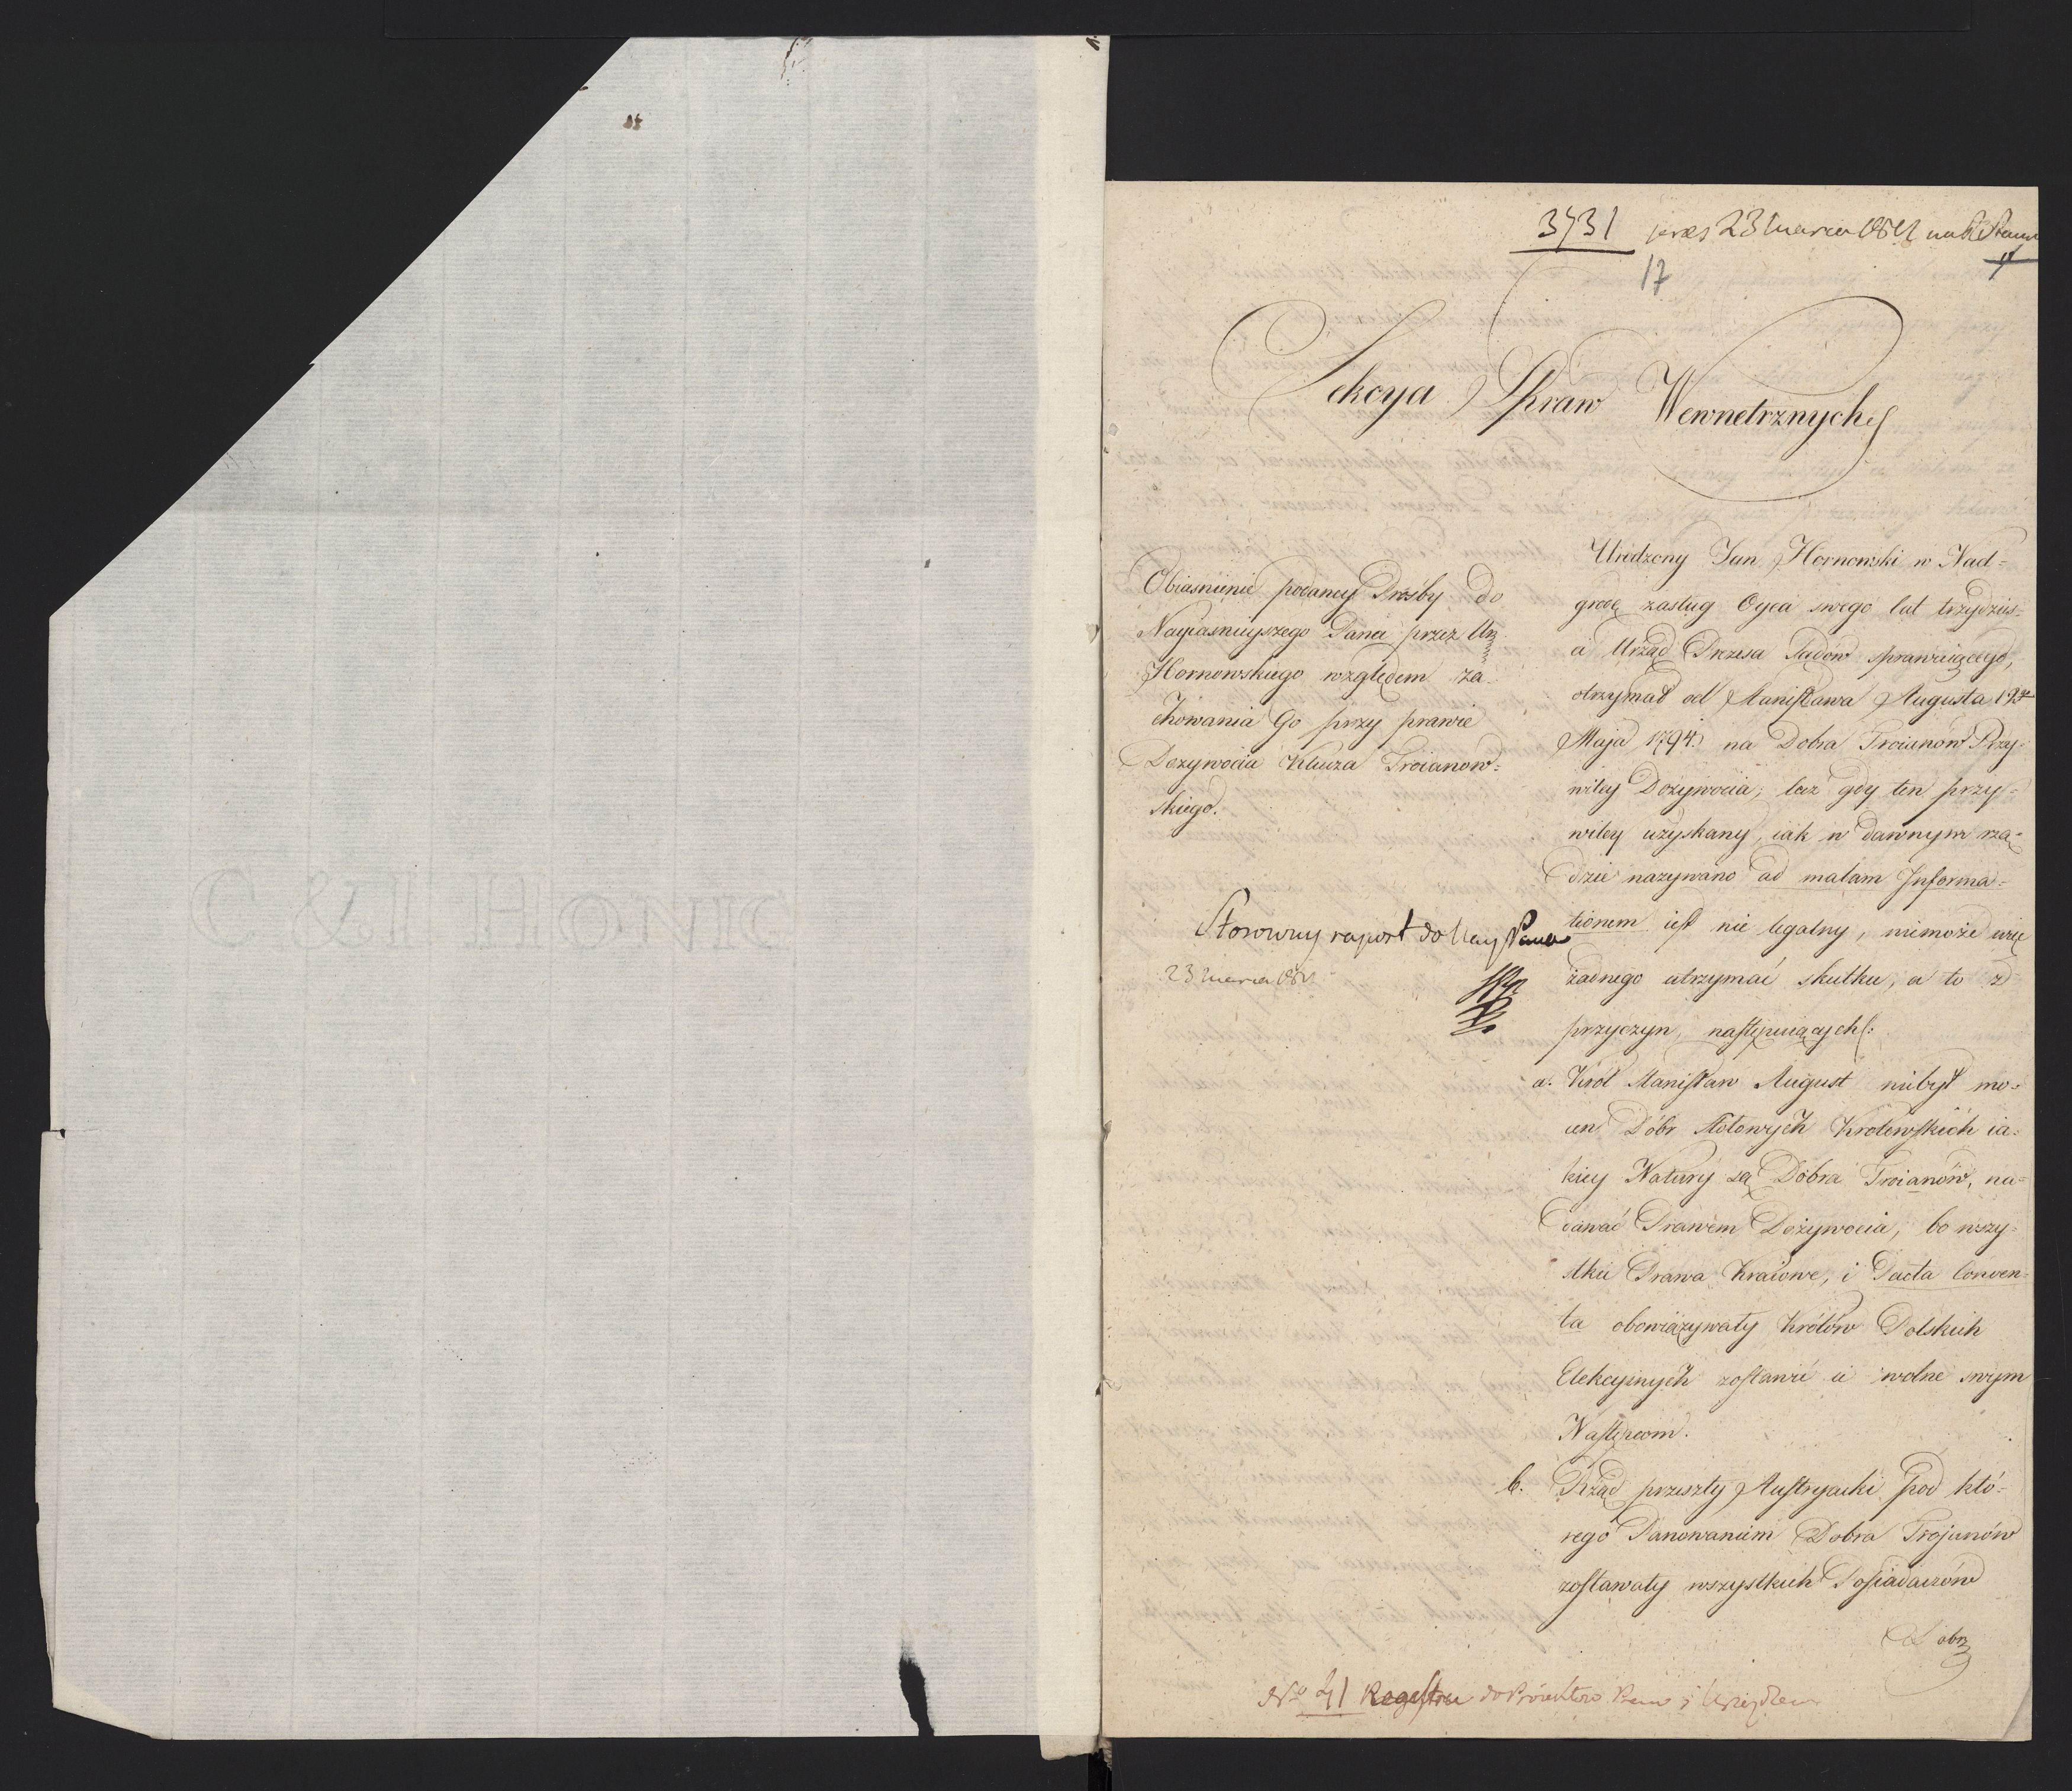 3731
17
Sekcya Spraw Wewnetrznych
Obiasnienie podaney Prośby do
Nayiasnieyszego Pana przez Ur
Hornowskiego względem za-
chowania Go przy prawie
Dozywocia Klucza Troianow=
skiego.
Stosowny raport do Nay Pana
23 marca
Urodzony Jan Hornowski w Nad=
grodę zasług Oyca swego lat trzydzies-
ci Urząd Prezesa Sądow sprawuiącego,
otrzymał od Stanisława Augusta 19
Maja 1794. na Dobra Troianów Przy-
wiley Dożywocia; lecz gdy ten przy=
wiley uzyskany, iak w dawnym rzą=
dzie nazywano ad malam Informa=
tionem iest nie legalny, niemoże więc
żadnego utrzymać skutku, a to z
przyczyn następuiących:
a. Król Stanisław August niebył mo=
cen Dóbr Stołowych Krolewskich ia=
kiey Natury są Dobra Troianów, na=
dawać Prawem Dożywocia, bo wszy=
stkie Prawa Kraiowe, i Pacta Conven=
ta obowiązywały Królów Polskich
Elekcyinych zostawić ie wolne swym
Następcom.
b. Rząd przeszły Austryacki pod któ=
rego Panowaniem Dobra Trojanów
zostawały wszystkich Posiadaczów
Dobr
No 41 Regestru do
C & I HONIG